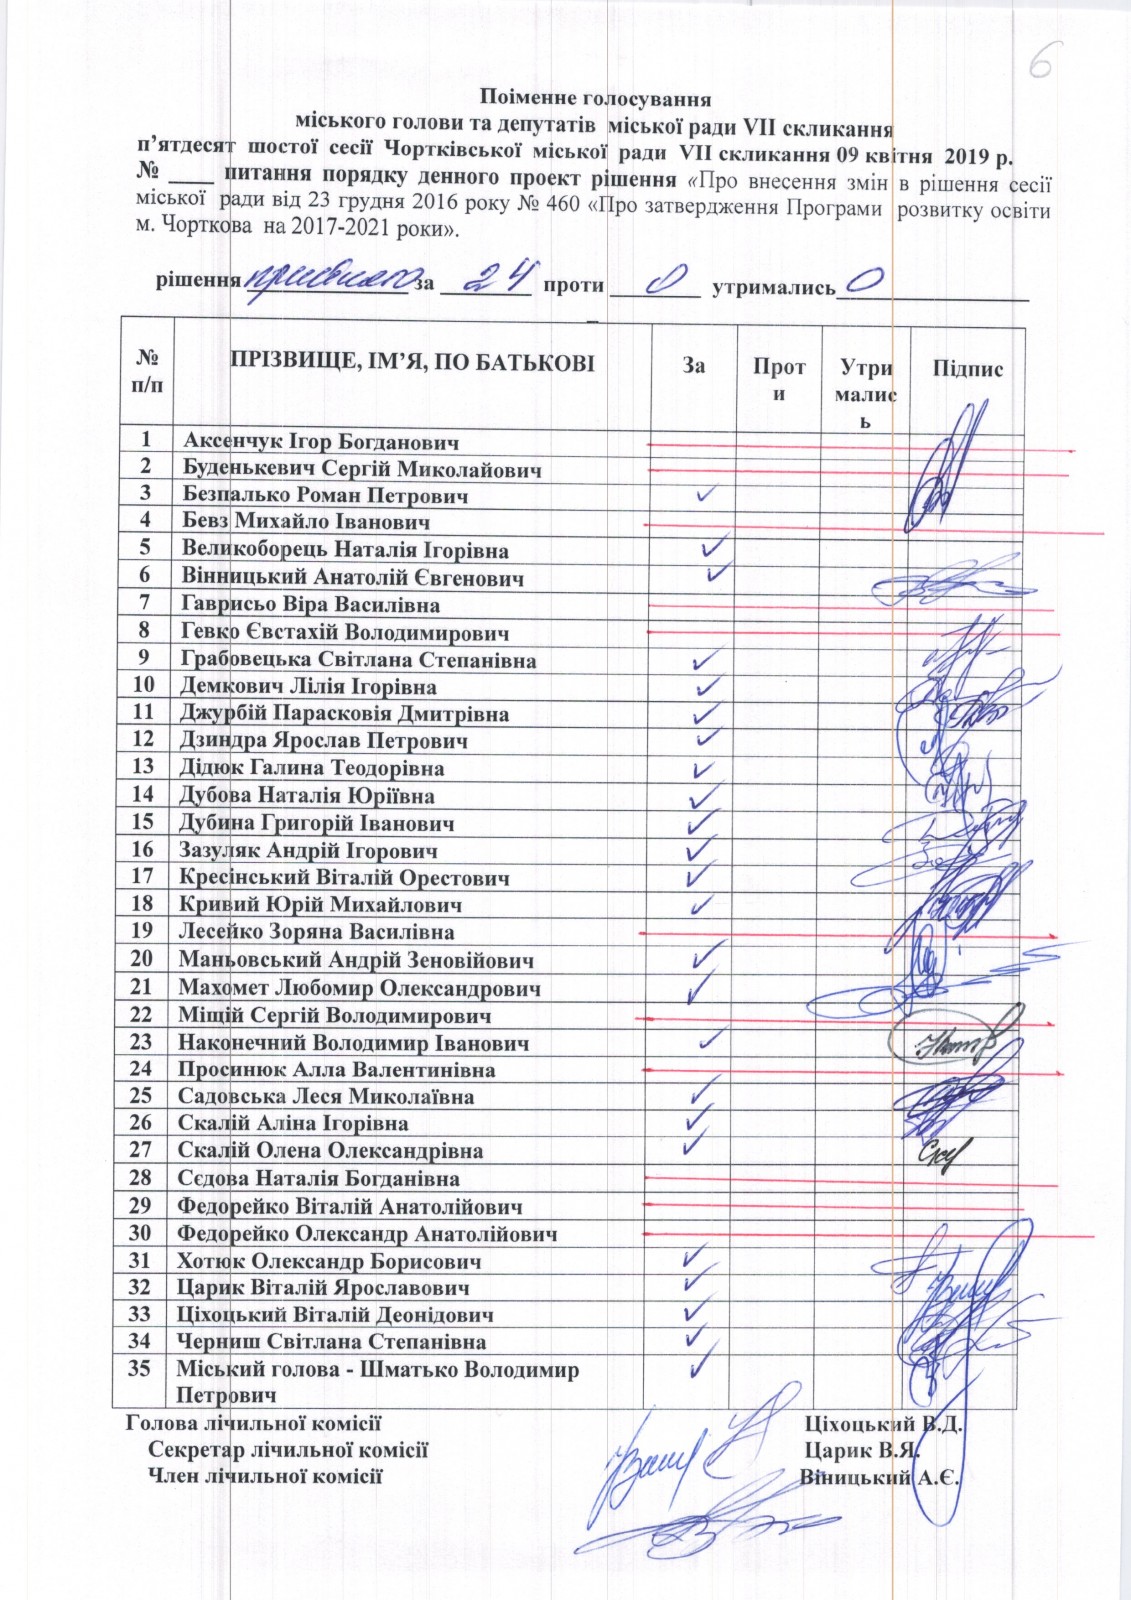 6
Поіменне голосування
міського голови та депутатів міської ради VII скликання
п’ятдесят шостої сесії Чортківської міської ради VII скликання 09 квітня 2019 р.
№ ____ питання порядку денного проект рішення «Про внесення змін в рішення сесії
міської ради від 23 грудня 2016 року № 460 «Про затвердження Програми розвитку освіти
м. Чорткова на 2017-2021 роки».
рішення прийнято за 24 проти 0 утримались 0
№ п/п ПРІЗВИЩЕ, ІМ’Я, ПО БАТЬКОВІ За Прот и Утри малис ь Підпис
1 Аксенчук Ігор Богданович
2 Буденькевич Сергій Миколайович
3 Безпалько Роман Петрович ✓
4 Бевз Михайло Іванович
5 Великоборець Наталія Ігорівна ✓
6 Вінницький Анатолій Євгенович ✓
7 Гаврисьо Віра Василівна
8 Гевко Євстахій Володимирович
9 Грабовецька Світлана Степанівна ✓
10 Демкович Лілія Ігорівна ✓
11 Джурбій Парасковія Дмитрівна ✓
12 Дзиндра Ярослав Петрович ✓
13 Дідюк Галина Теодорівна ✓
14 Дубова Наталія Юріївна ✓
15 Дубина Григорій Іванович ✓
16 Зазуляк Андрій Ігорович ✓
17 Кресінський Віталій Орестович ✓
18 Кривий Юрій Михайлович ✓
19 Лесейко Зоряна Василівна
20 Маньовський Андрій Зеновійович ✓
21 Махомет Любомир Олександрович ✓
22 Міщій Сергій Володимирович
23 Наконечний Володимир Іванович ✓
24 Просинюк Алла Валентинівна
25 Садовська Леся Миколаївна ✓
26 Скалій Аліна Ігорівна ✓
27 Скалій Олена Олександрівна ✓
28 Сєдова Наталія Богданівна
29 Федорейко Віталій Анатолійович
30 Федорейко Олександр Анатолійович
31 Хотюк Олександр Борисович ✓
32 Царик Віталій Ярославович ✓
33 Ціхоцький Віталій Деонідович ✓
34 Черниш Світлана Степанівна ✓
35 Міський голова - Шматько Володимир ✓
Петрович
Голова лічильної комісії Ціхоцький В.Д.
Секретар лічильної комісії Царик В.Я.
Член лічильної комісії Віницький А.Є.